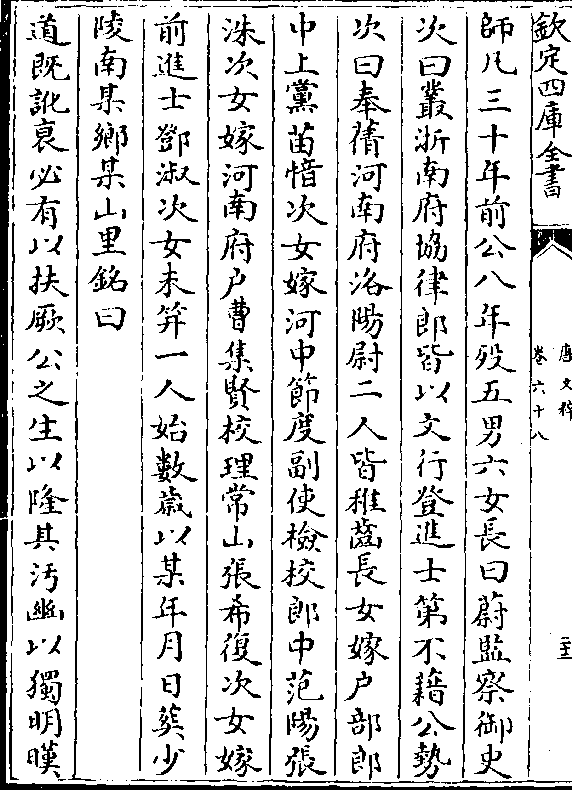 欽定四庫全書
唐文粹
卷六十八
師凡三十年前公八年歿五男六女長曰蔚監察御史
次曰叢浙南府協律郎皆以文行登進士第不藉公勢
次曰奉蒨河南府洛陽尉二人皆稚齒長女嫁户部郎
中上黨苗愔次女嫁河中節度副使檢校郎中范陽張
洙次女嫁河南府户曹集賢校理常山張希復次女嫁
前進士鄧淑次女未笄一人始數歳以某年月日葬少
陵南某鄉某山里銘曰
道既訛裒必有以扶厥公之生以隆其汚幽以獨明暵